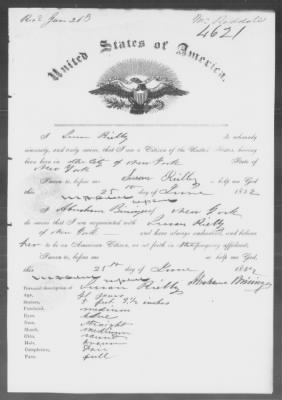 Rec'd Jan 26
4621
United States of America.
I Susan Rielly do solemnly
sincerely, and truly swear, that I am a Citizen of the United States, having
been born in the City of New York State of
New York
Sworn to, before me Susan Rielly so help me God
this 25th day of June 18
I Abraham New York
do swear that I am acquainted with Susan Rielly
of New York and have always understood and believe
her to be an American Citizen, as set forth in foregoing affidavit.
Sworn to, before me so help me God
this 25th day of June 18
Abraham
Personal description of Susan Rielly
Age, years
Stature, 5 feet inches
Forehead, medium
Eyes,
Nose, straight
Mouth, medium
Chin, round
Hair,
Complexion, fair
Face, full